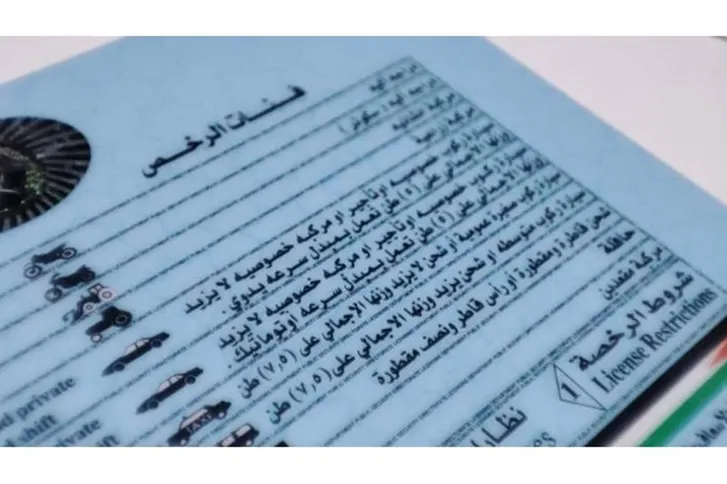 فئات الرخص
دراجة آلية
دراجة آلية ( سكوتر )
مركبة انشائية
مركبة زراعية
سيارة ركوب خصوصيه او تأجير او مركبه خصوصيه لا يزيد
وزنها الاجمالي على (٥) طن تعمل بمبدل سرعه يدوي.
سيارة ركوب خصوصيه او تأجير او مركبه خصوصيه لا يزيد
وزنها الاجمالي على (٥) طن تعمل بمبدل سرعه اوتوماتيك.
سيارة ركوب صغيرة عمومية او شحن لا يزيد وزنها الاجمالي على (٧,٥) طن
سيارة ركوب متوسطه او شحن يزيد وزنها الاجمالي على (٧,٥) طن
شحن قاطرة ومقطورة او راس قاطر ونصف مقطورة
حافلة
مركبة مقعدين
شروط الرخصة
License Restrictions
1
private
shift
private
TAXI